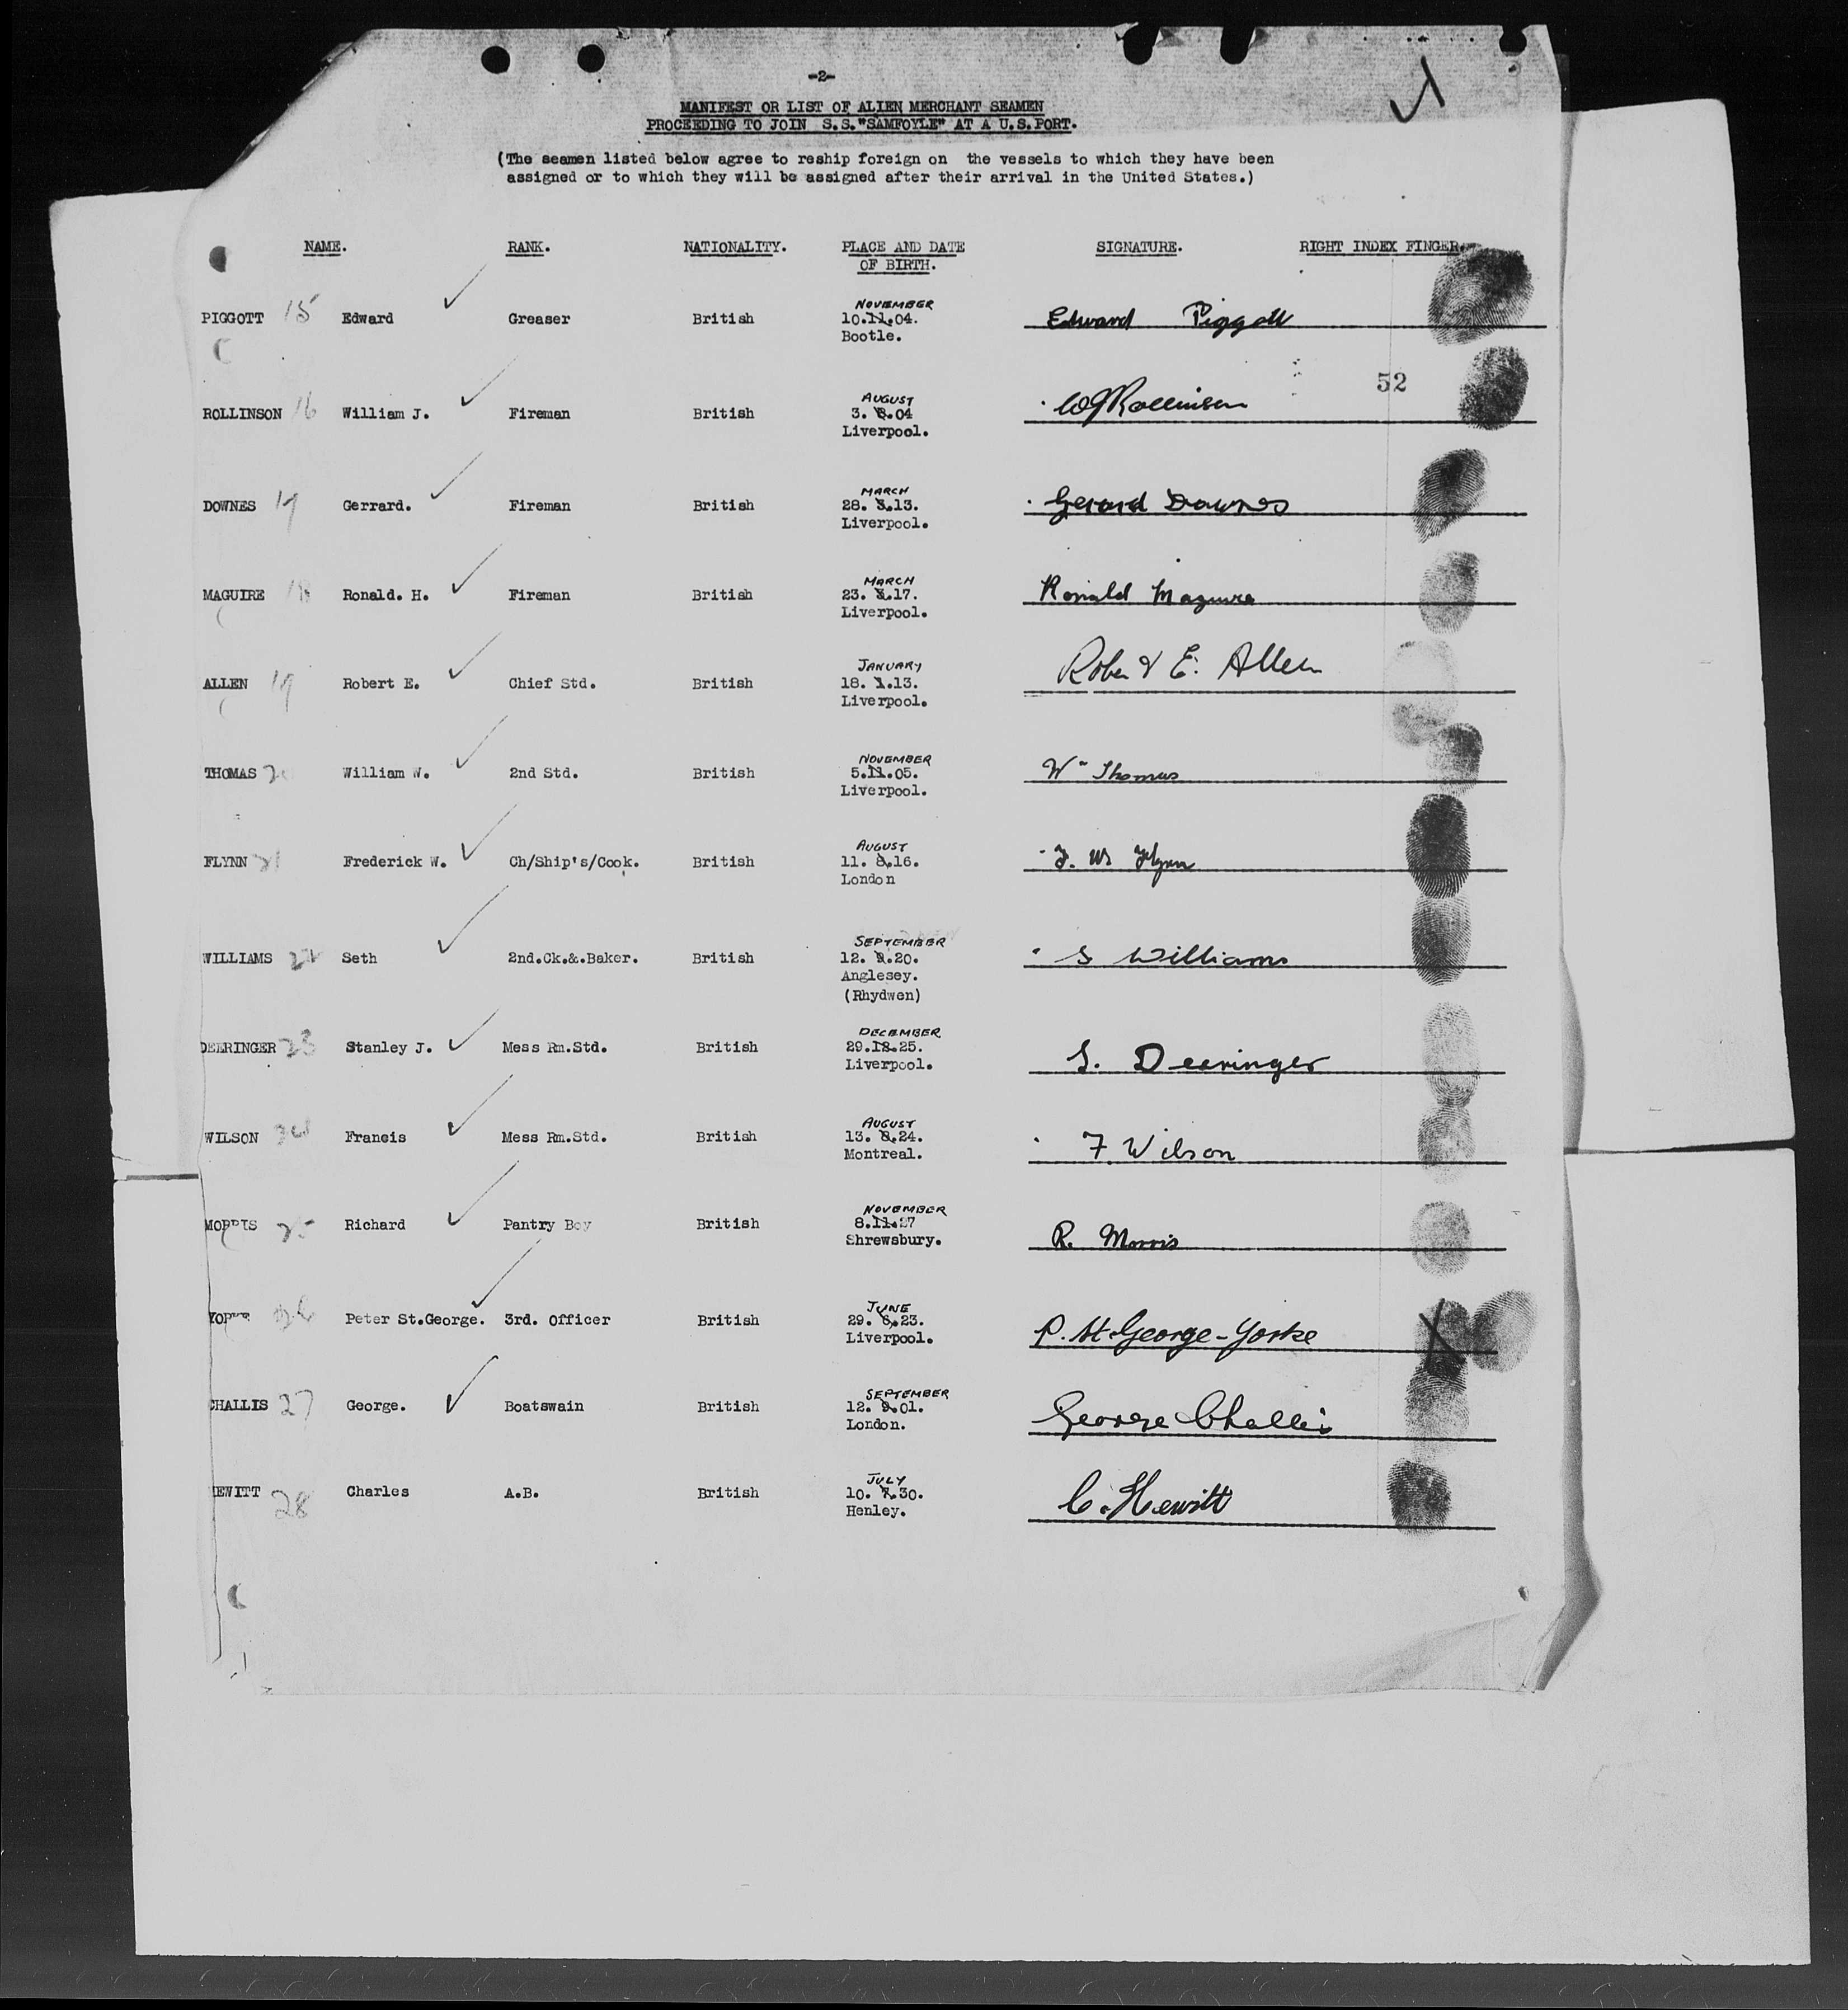 -2-
MANIFEST OR LIST OF ALIEN MERCHANT SEAMEN
PROCEEDING TO JOIN S.S."SAMFOYLE" AT A U.S.PORT.
(The seamen listed below agree to reship foreign on the vessels to which they have been
assigned or to which they will be assigned after their arrival in the United States.)
NAME. RANK. NATIONALITY. PLACE AND DATE SIGNATURE. RIGHT INDEX FINGER.
OF BIRTH.
NOVEMBER
PIGGOTT 15 Edward Greaser British 10.11.04. Edward Piggott
Bootle.
52
AUGUST
ROLLINSON 16 William J. Fireman British 3. 8.04 WJRollinson
Liverpool.
MARCH
DOWNES 17 Gerrard. Fireman British 28. 3.13. Gerard Downes
Liverpool.
MARCH
MAGUIRE 18 Ronald. H. Fireman British 23. 3.17. Ronald Maguire
Liverpool.
JANUARY
ALLEN 19 Robert E. Chief Std. British 18. 1.13. Robert E. Allen
Liverpool.
NOVEMBER
THOMAS 20 William W. 2nd Std. British 5.11.05. Wm Thomas
Liverpool.
AUGUST
FLYNN 21 Frederick W. Ch/Ship's/Cook. British 11. 8.16. F. W. Flynn
London
SEPTEMBER
WILLIAMS 22 Seth 2nd.Ck.&.Baker. British 12. 9.20. S Williams
Anglesey.
(Rhydwen)
DECEMBER
DEERINGER 23 Stanley J. Mess Rm.Std. British 29.12.25. S. Deeringer
Liverpool.
AUGUST
WILSON 24 Francis Mess Rm.Std. British 13. 8.24. F. Wilson
Montreal.
NOVEMBER
MORRIS 25 Richard Pantry Boy British 8.11.27 R. Morris
Shrewsbury.
JUNE
YORKE 26 Peter St.George. 3rd. Officer British 29. 6.23. P. St. George-Yorke
Liverpool.
SEPTEMBER
CHALLIS 27 George. Boatswain British 12. 9.01. George Challis
London.
JULY
HEWITT 28 Charles A.B. British 10. 7.30. C. Hewitt
Henley.